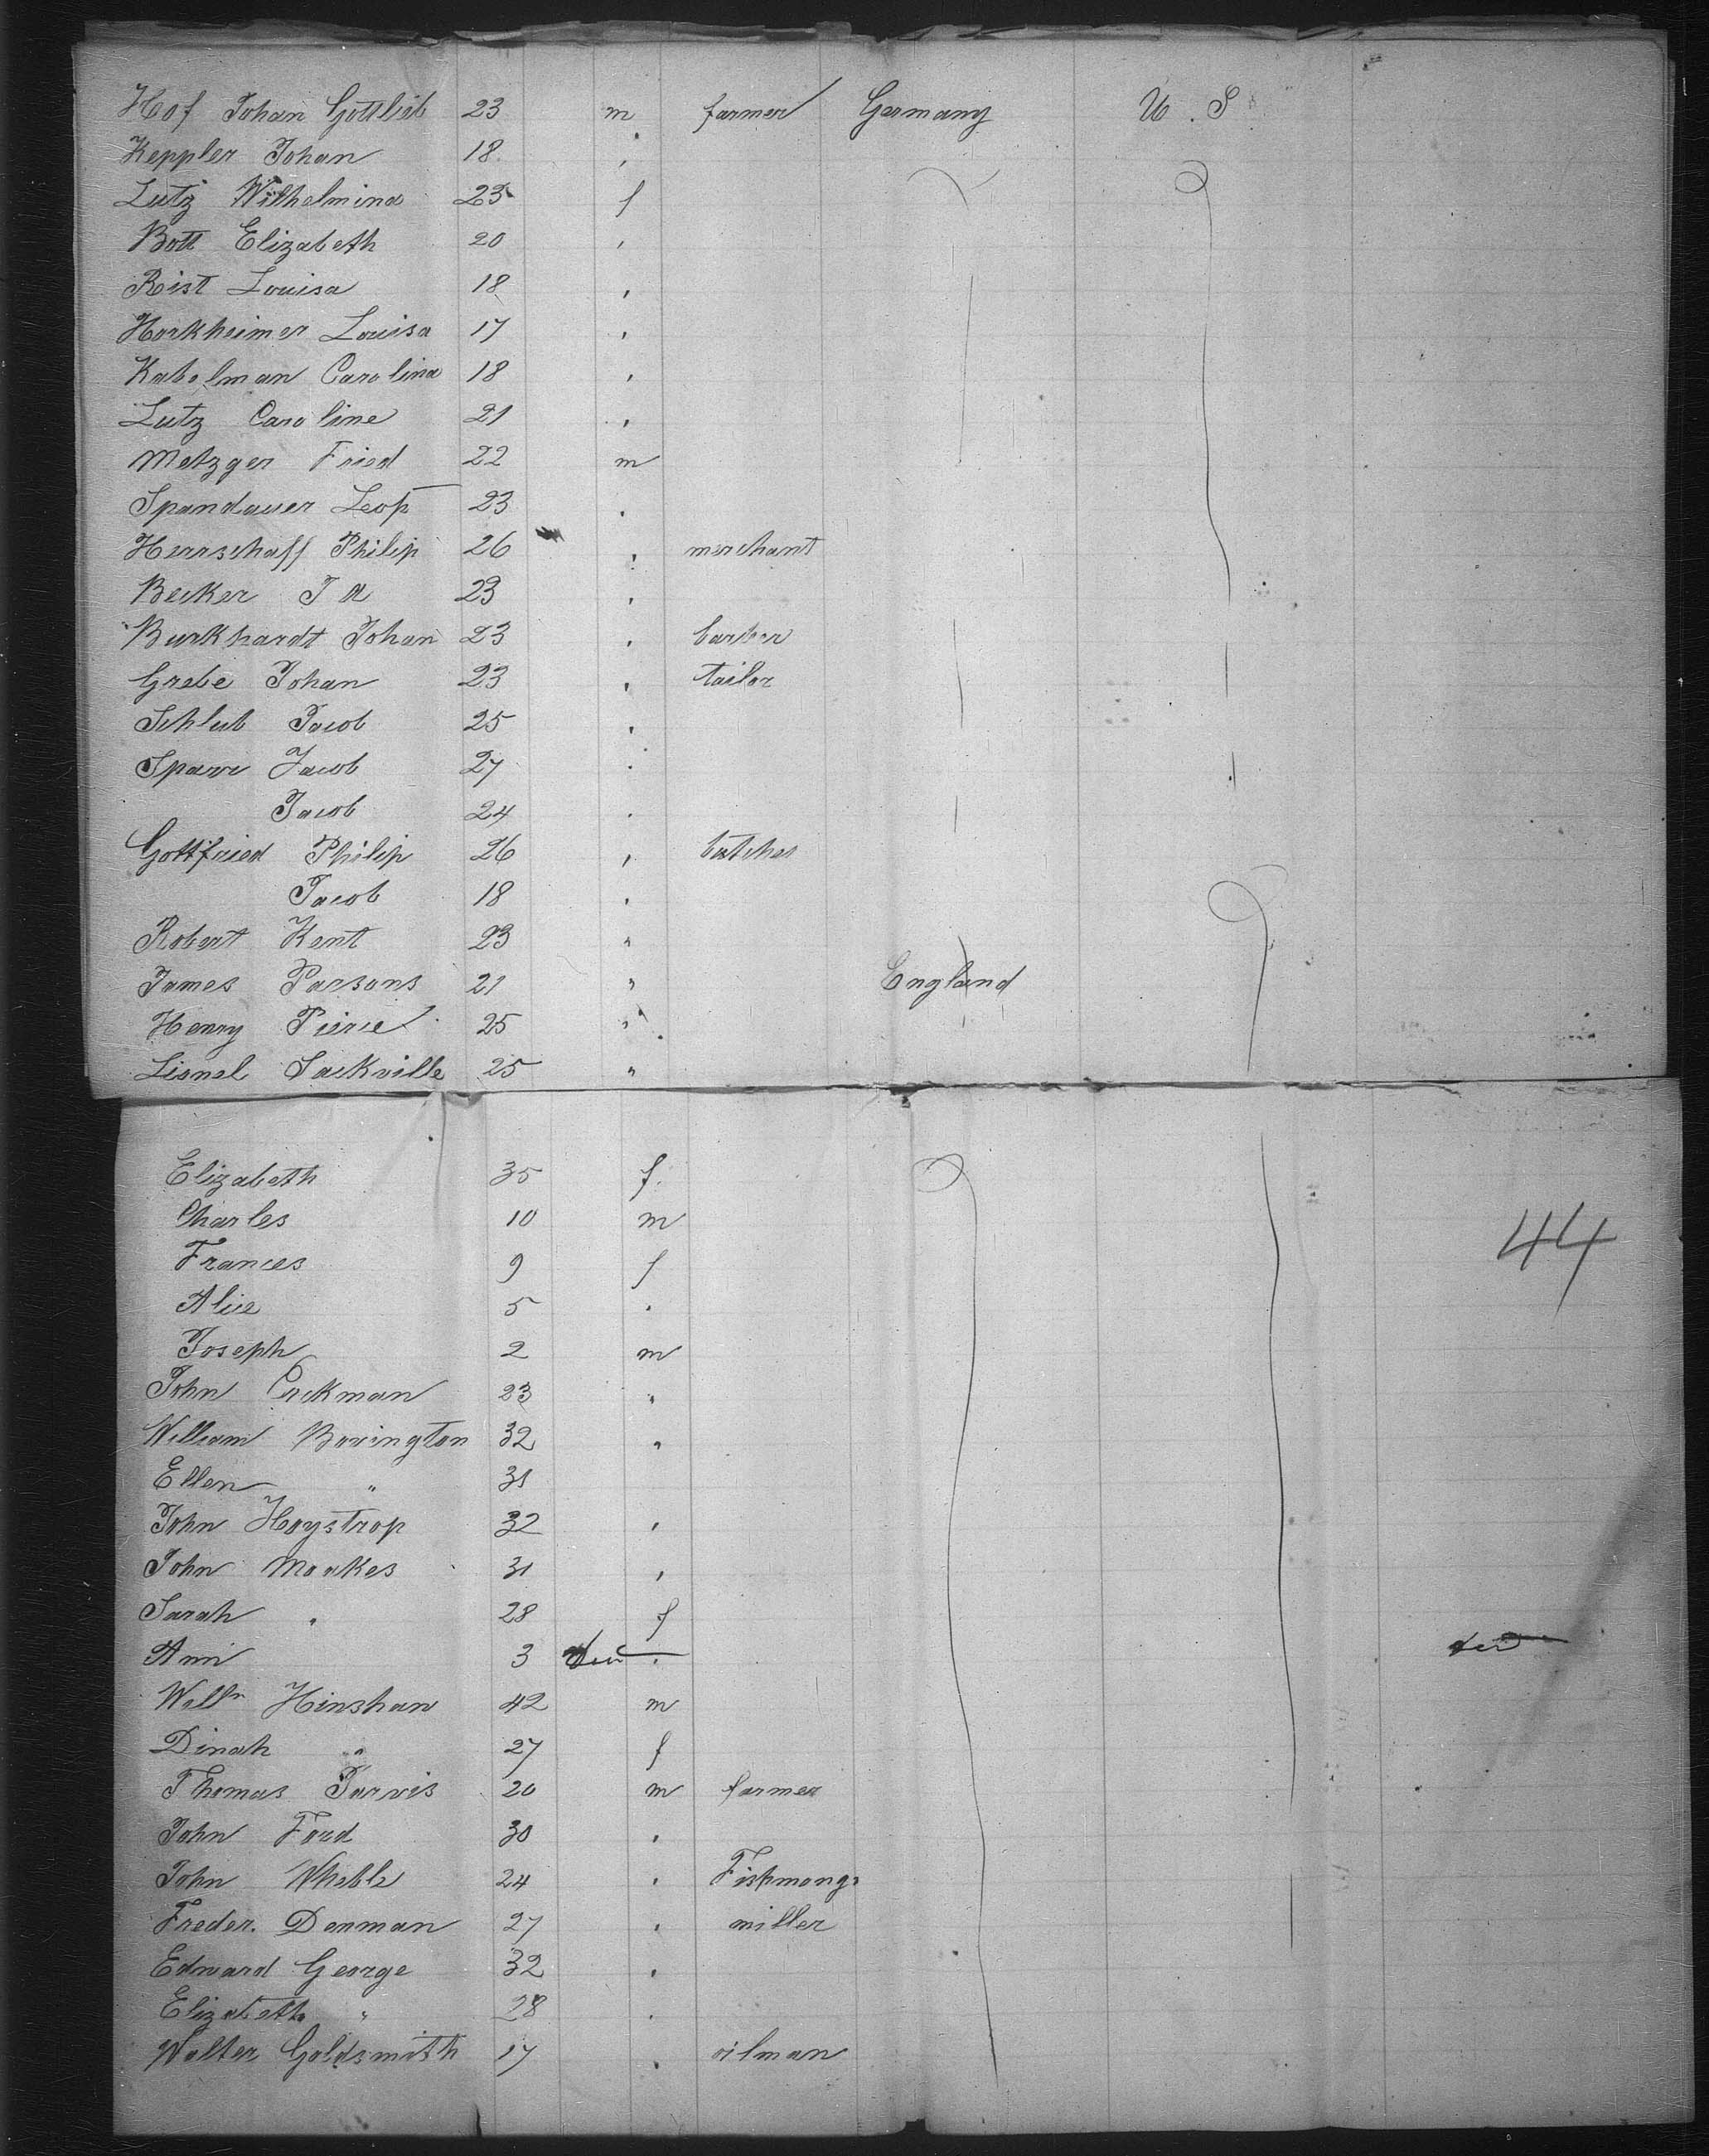 Hof Johan Gottlieb 23 m farmer Germany U. S
Keppler Johan 18 "
Lutz Wilhelmina 23 f
Bott Elizabeth 20 "
Rist Louisa 18 "
Horkheimer Louisa 17 "
Kabelman Carolina 18 "
Lutz Caroline 21 "
Metzger Fried 22 m
Spandauer Leop 23 "
Herrschaff Philip 26 " merchant
Becker J A 23 "
Burkhardt Johan 23 " barber
Grebe Johan 23 " tailor
Schlub Jacob 25 "
Jacob 27 "
Jacob 24 "
Gottfried Philip 26 " butcher
Jacob 18 "
Robert Kent 23 "
James Parsons 21 " England
Henry Pierce 25 "
Lionel Sackville 25 "
Elizabeth 35 f.
Charles 10 m
44
Frances 9 f
Alice 5 "
Joseph 2 m
John 23 "
William Bovington 32 "
Ellen " 31
John Haystrop 32 "
John Moakes 31 "
Sarah " 28 f
Ann 3 "
Willm Hinshaw 42 m
Dinah " 27 f
Thomas Jarvis 20 m farmer
John Ford 30 "
John Wheble 24 " Fishmongr
Freder. Denman 27 " miller
Edward George 32 "
Elizabeth " 28 "
Walter Goldsmith 17 " oilman